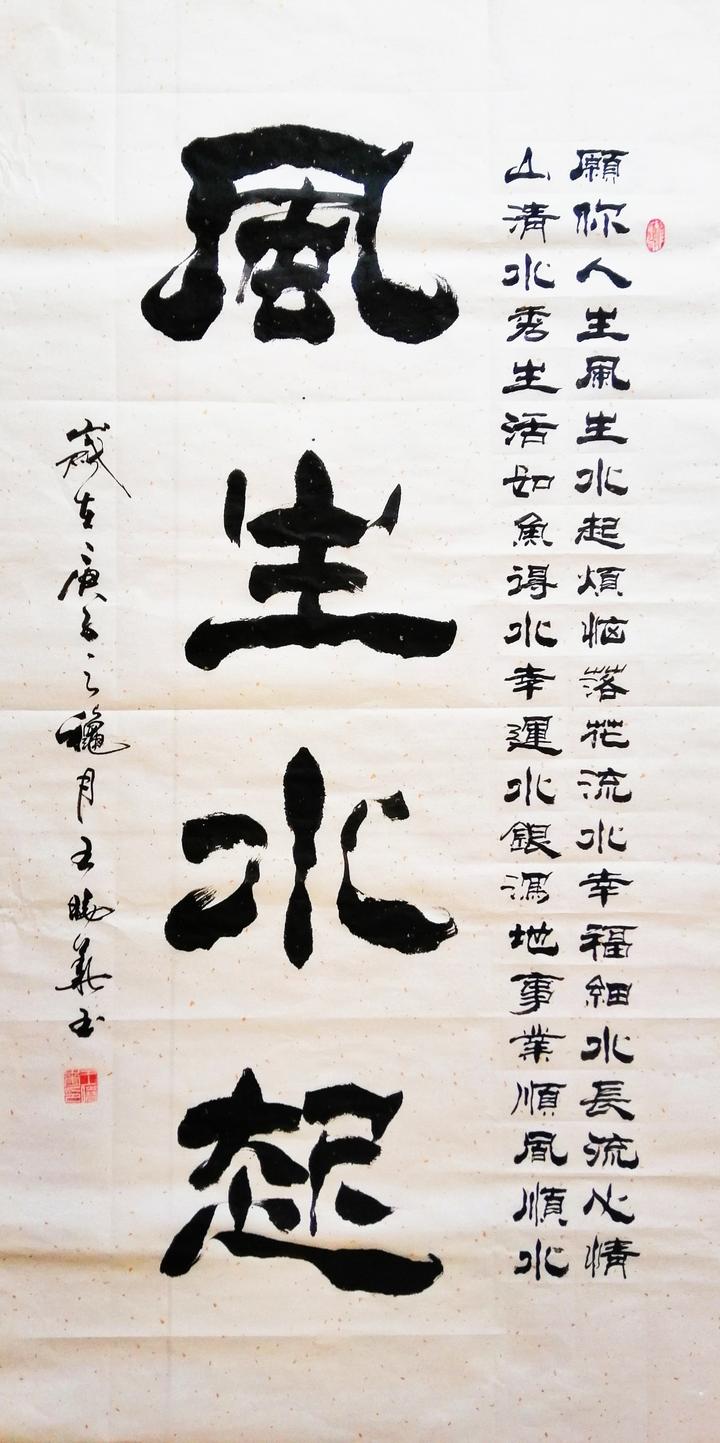 願你人生風生水起煩惱落花流水幸福細水長流心情
山清水秀生活如魚得水幸運水銀瀉地事業順風順水
風生水起
歲在庚子之穐月王曉義书